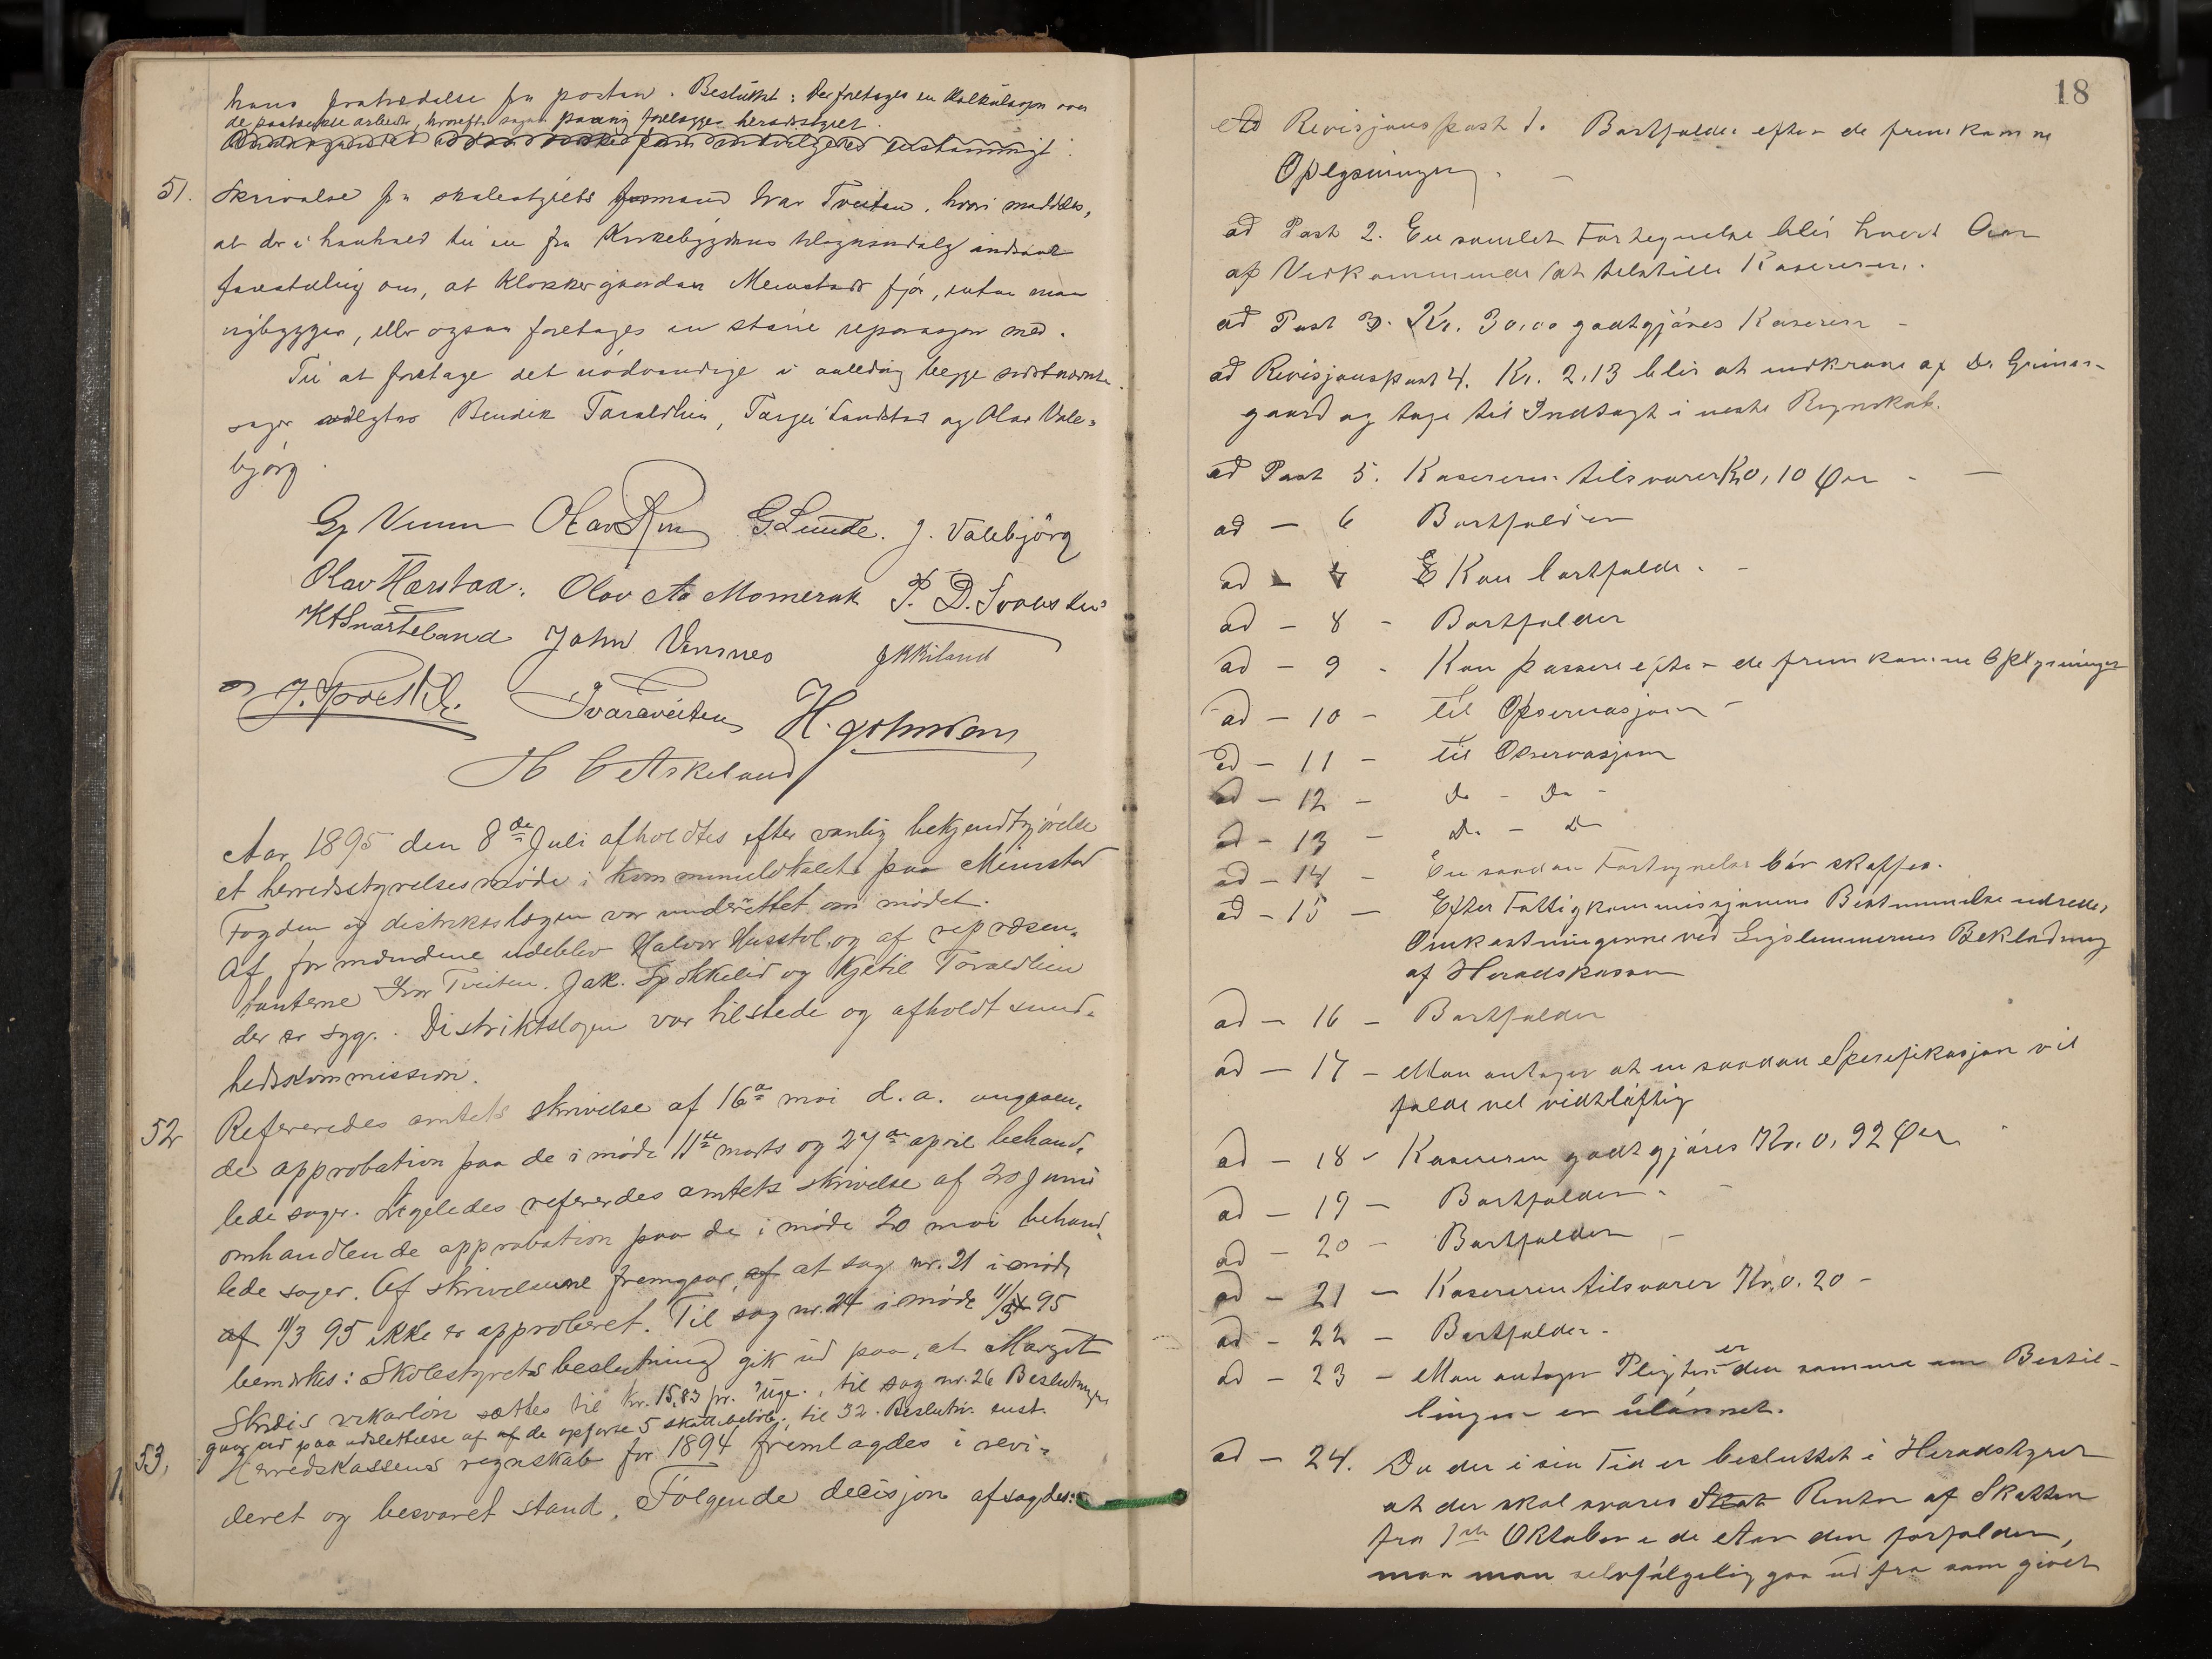 hans fratrædelse fra posten. Besluttet: Der foretages en Kalkulasjon over
de paatænkte arbeider, hvorefter sagen paany forelægges herredsstyret.
enstemmigt.
51. Skrivelse fra skolestyrets formand Ivar Tveiten, hvori meddeles,
at der i henhold til en fra Kirkebygdens tilsynsudvalg indsendt
forestilling om, at Klokkergaarden Menstads fjøs, enten maa
nybygges, eller ogsaa foretages en større reparasjon med.
Til at foretage det nødvendige i anledning begge sidstnævnte
sager valgtes Bendik Taraldlien, Tarjei Landstad og Olav Vale=
bjørg.
Gp Venum Olav Rui G. Lunde. J. Valebjörg
Olav Hærstad. Olav Aa Momrak P. D. Svalastu
K H Snarteland John Vensnes J K Kiland
J. Spokkeli. Ivar Tveiten H. Johnsen
H C Askeland
Aar 1895 den 8de Juli afholdtes efter vanlig bekjendtgjørelse
et herredsstyrelsesmøde i kommunelokalet paa Menstad
Fogden og distriktslægen var underrettet om mødet.
Af formændene udeblev Halvor Husstøl og af repræsen=
tanterne Ivar Tveiten. Jak. Spokkelid og Kjetil Toraldlien
der er syg. Distriktslægen var tilstede og afholdt sund=
hedskommission.
52 Refereredes amtets skrivelse af 16de mai d. a. angaaen=
de approbation paa de i møde 11te marts og 27de april behand=
lede sager. Ligeledes refereredes amtets skrivelse af 20 Juni
omhandlende approbation paa de i møde 20 mai behand=
lede sager. Af skrivelserne fremgaar, af at sag nr. 21 i møde
af 11/3 95 ikke er approberet. Til sag nr. 24 i møde 11/3 95
bemærkes: Skolestyrets beslutning gik ud paa, at Margit
Skreis vikarløn sættes til kr. 15,83 pr. Uge. , til sag nr. 26 Beslutningen
gaar ud paa udslettelse af af de opførte 5 skattebeløb, til 32. Beslutn. enst.
53. Herredskassens regnskab for 1894 fremlagdes i revi=
deret og besvaret stand. Følgende decisjon afsagdes:
18
ad Revisjonspost 1. Bortfalder efter de fremkomne
Oplysninger. –
ad Post 2. En samlet Fortegnelse blir hvert Aar
af Vedkommende at tilstille Kassereren.
ad Post 3. Kr. 30,00 godtgjøres Kasseren –
ad Revisjonspost 4. Kr. 2,13 blir at indkræve af Dr. Grims=
gaard og tage til Indtægt i neste Regnskab.
ad Post 5. Kassereren tilsvarer Kr 0,10 Øre - –
ad – 6 Bortfalder
ad – 7 Kan bortfalde. -
ad – 8 - Bortfalder
ad – 9 - Kan passere efter de fremkomne Oplysninger
ad – 10 – til Observasjon –
ad – 11 – til Observasjon
ad – 12 – Do – Do –
ad – 13 – Do – Do
ad – 14 – En saadan Fortegnelse bør skaffes.
ad – 15 – Efter Fattigkommissjonens Bestemmelse udredes
Omkostningerne ved Lægslemmernes Beklædning
af Heradskassen
ad – 16 – Bortfalder
ad – 17 – Man antager at en saadan Spesifikasjon vil
falde vel vidtløftig
ad – 18 – Kassereren godtgjøres Kr. 0,92 Øre
ad – 19 – Bortfalder. –
ad – 20 – Bortfalder –
ad – 21 – Kassereren tilsvarer Kr. 0.20 –
ad – 22 – Bortfalder –
ad – 23 – Man antager Pligten er den samme om Bestil-
lingen er ulønnet.
ad – 24. Da der i sin Tid er besluttet i Heradstyret
at der skal svares Skat Renter af Skatten
fra 1ste Oktober i de Aar den forfalder,
maa man selvfølgelig gaa ud fra som givet